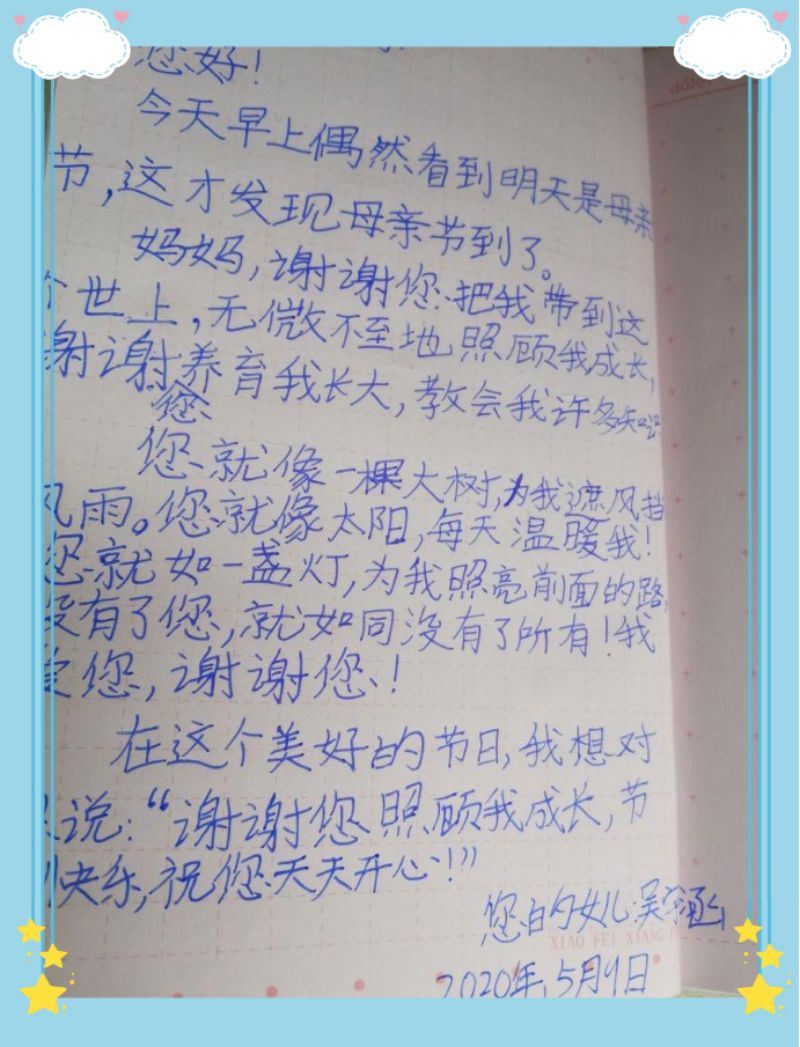 您好！
今天早上偶然看到明天是母亲
节，这才发现母亲节到了。
妈妈，谢谢您把我带到这
个世上，无微不至地照顾我成长，
谢谢养育我长大，教会我许多知识
您
您就像一棵大树，为我遮风挡
风雨。您就像太阳，每天温暖我！
您就如一盏灯，为我照亮前面的路，
没有了您，就如同没有了所有！我
爱您，谢谢您！
在这个美好的节日，我想对
说：“谢谢您照顾我成长，节
快乐，祝您天天开心！”
您的女儿：吴涵
XIAO FEI XIANG
2020年，5月9日